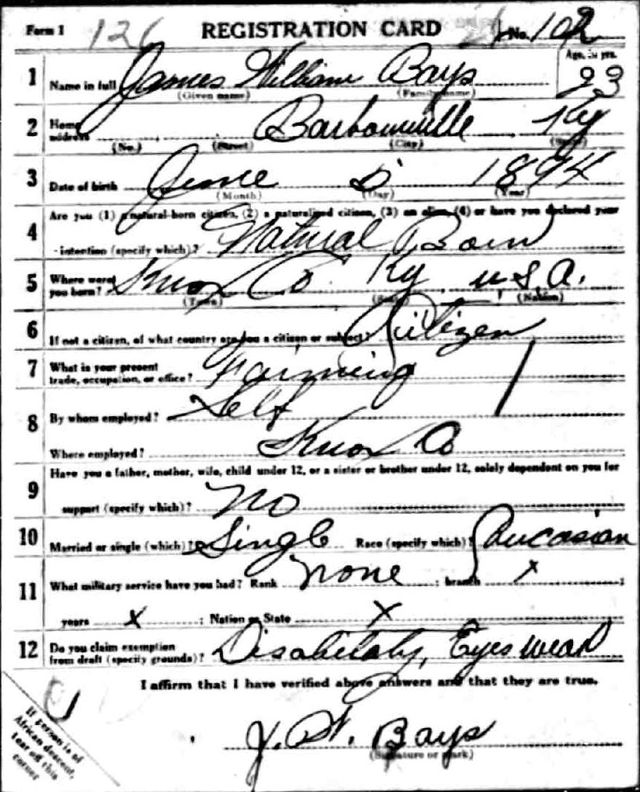 Form 1 126 REGISTRATION CARD No. 102
1 Name in full James William Bays Age, in yrs. 23
(Given name) (Family name)
2 Home address Barbourville Ky
(No.) (Street) (City) (State)
3 Date of birth June 5 1894
(Month) (Day) (Year)
4 Are you (1) a natural-born citizen, (2) a naturalized citizen, (3) an alien, (4) or have you declared your
intention (specify which)? Natural Born
5 Where were you born? Knox Co Ky U.S.A.
(Town) (State) (Nation)
6 If not a citizen, of what country are you a citizen or subject? Citizen
7 What is your present
trade, occupation, or office? Farming
8 By whom employed? Self
Where employed? Knox Co
9 Have you a father, mother, wife, child under 12, or a sister or brother under 12, solely dependent on you for
support (specify which)? No
10 Married or single (which)? Single Race (specify which)? Caucasian
11 What military service have you had? Rank none ; branch x ;
years x ; Nation or State x
12 Do you claim exemption
from draft (specify grounds)? Disability, Eyes weak
I affirm that I have verified above answers and that they are true.
J. W. Bays
(Signature or mark)
If person is of
African descent,
tear off this
corner